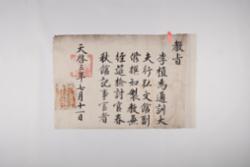 教旨
李植爲通訓大
夫行弘文館副
修撰知製教兼
經筵檢討官春
秋館記事官者
天啓三年七月十一日